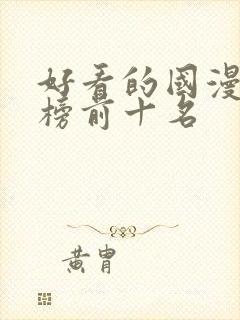 好看的國漫
榜前十名
黄胄